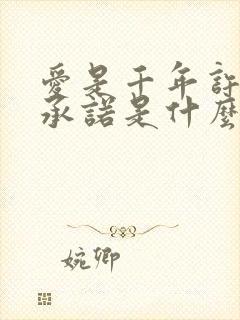 愛是千年許
承諾是什麼
婉卿